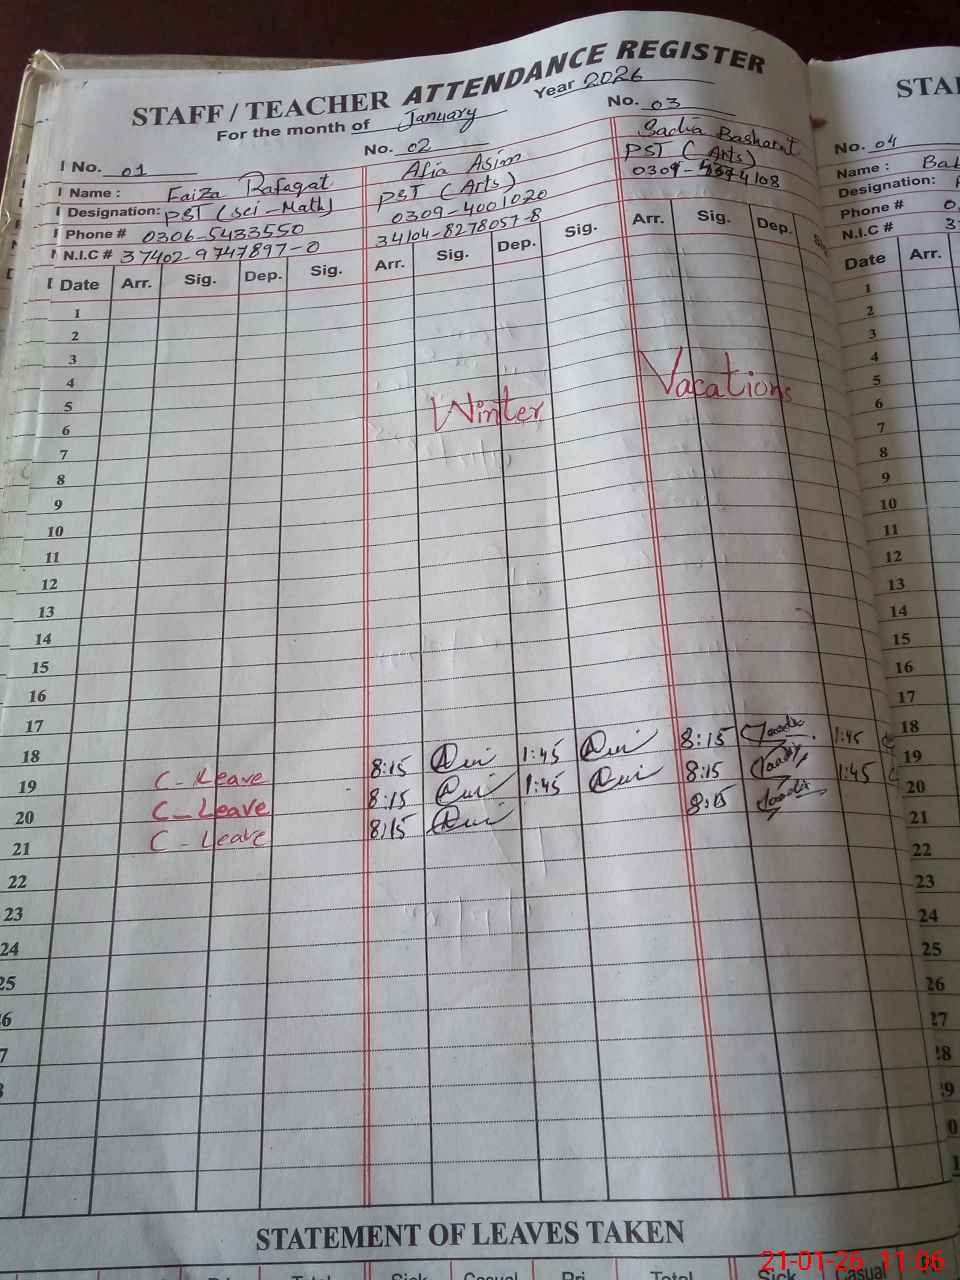 STAFF / TEACHER ATTENDANCE REGISTER
For the month of January Year 2026
No. 01
Name : Faiza Rafaqat
Designation: PST (Sci-Math)
Phone # 0306-5433550
N.I.C # 37402-9747897-0
No. 02
Afia Asim
PST (Arts)
0309-4001020
34104-8278057-8
No. 03
Sadia Basharat
PST (Arts)
No. 04
Name :
Designation:
Phone #
N.I.C #
Date Arr. Sig. Dep. Sig. Arr. Sig. Dep. Sig. Arr. Sig. Dep. Date Arr.
1 1
2 2
3 3
4 4
5 5
6 6
7 7
8 8
9 9
10 10
11 11
12 12
13 13
14 14
15 15
16 16
17 17
Winter Vacations
18 18
19 C-Leave 8:15 1:45 8:15 1:45 19
20 C-Leave 8:15 1:45 8:15 1:45 20
21 C-Leave 8:15 8:15 21
22 22
23 23
24 24
25 25
26
STATEMENT OF LEAVES TAKEN
Total Sick Casual Pri. Total Sick Casual
21-01-26 11:06